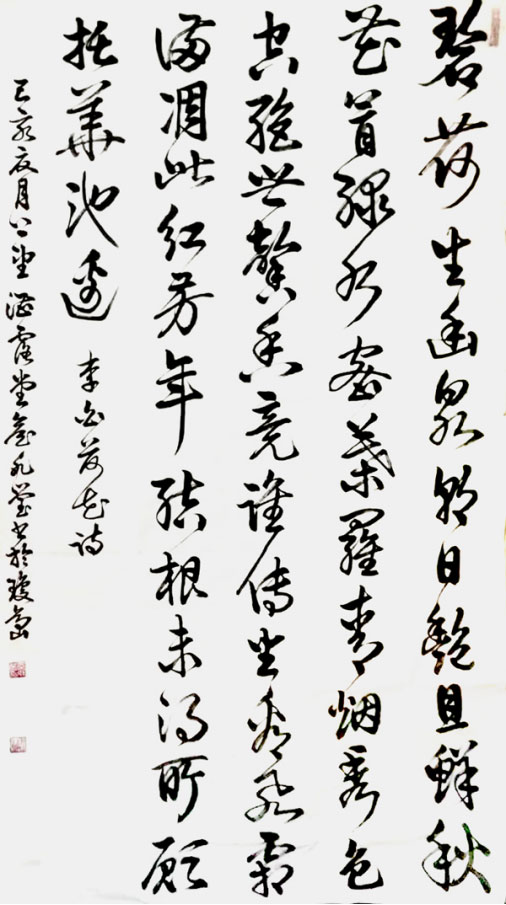 碧荷生幽泉朝日艷且鮮秋
花冒綠水密葉羅青烟秀色
空絕世馨香竟誰傳坐看飛霜
滿凋此紅芳年結根未得所願
托華池邊 李白荷花詩
己亥 月 堂 書於瓊島